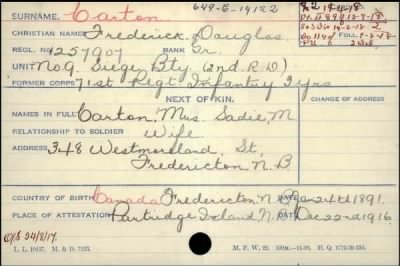 649-C-14122
SURNAME. Carton.
CHRISTIAN NAME Frederick Douglas.
REGL. No. 1257907 RANK Gr.
UNIT No 9. Siege Bty (2nd. R.D)
FORMER CORPS 71st Regt Infantry 3 yrs
NEXT OF KIN. CHANGE OF ADDRESS
NAMES IN FULL Carton, Mrs. Sadie, M.
RELATIONSHIP TO SOLDIER Wife
ADDRESS 348 Westmorland, St,
Fredericton. N. B.
COUNTRY OF BIRTH Canada Fredericton N.B. DATE Jan 24th 1891.
PLACE OF ATTESTATION Partridge Island, N.B. DATE Dec 22nd 1916.
O/S 24/8/17.
L. L. 10637. M. & D. 7233. M. F. W. 22. 100m.—11-16. H. Q. 1772-39-339.